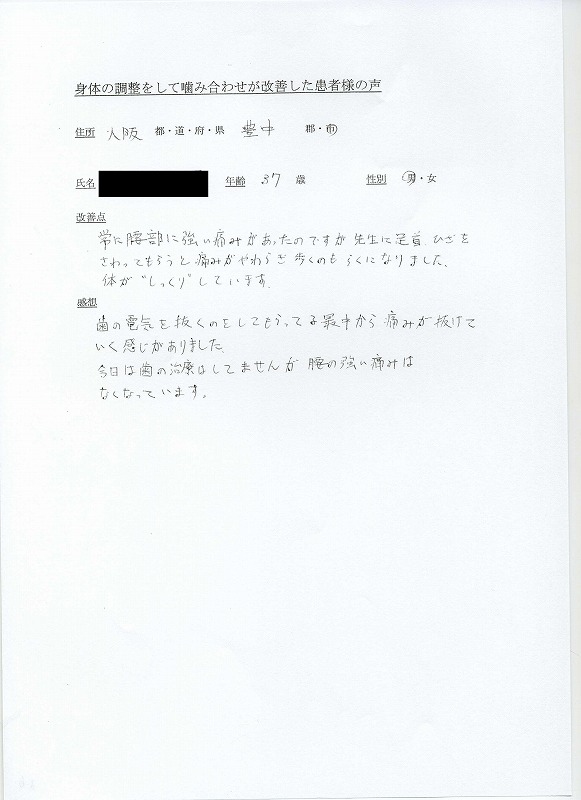 身体の調整をして噛み合わせが改善した患者様の声
住所 大阪 都・道・府・県 豊中 郡・市
氏名 年齢 37 歳 性別 男・女
改善点
常に腰部に強い痛みがあったのですが先生に足首、ひざを
さわってもらうと痛みがやわらぎ歩くのもらくになりました。
体が"しっくり"しています。
感想
歯の電気を抜くのをしてもらってる最中から痛みが抜けて
いく感じがありました。
今日は歯の治療はしてませんが腰の強い痛みは
なくなっています。